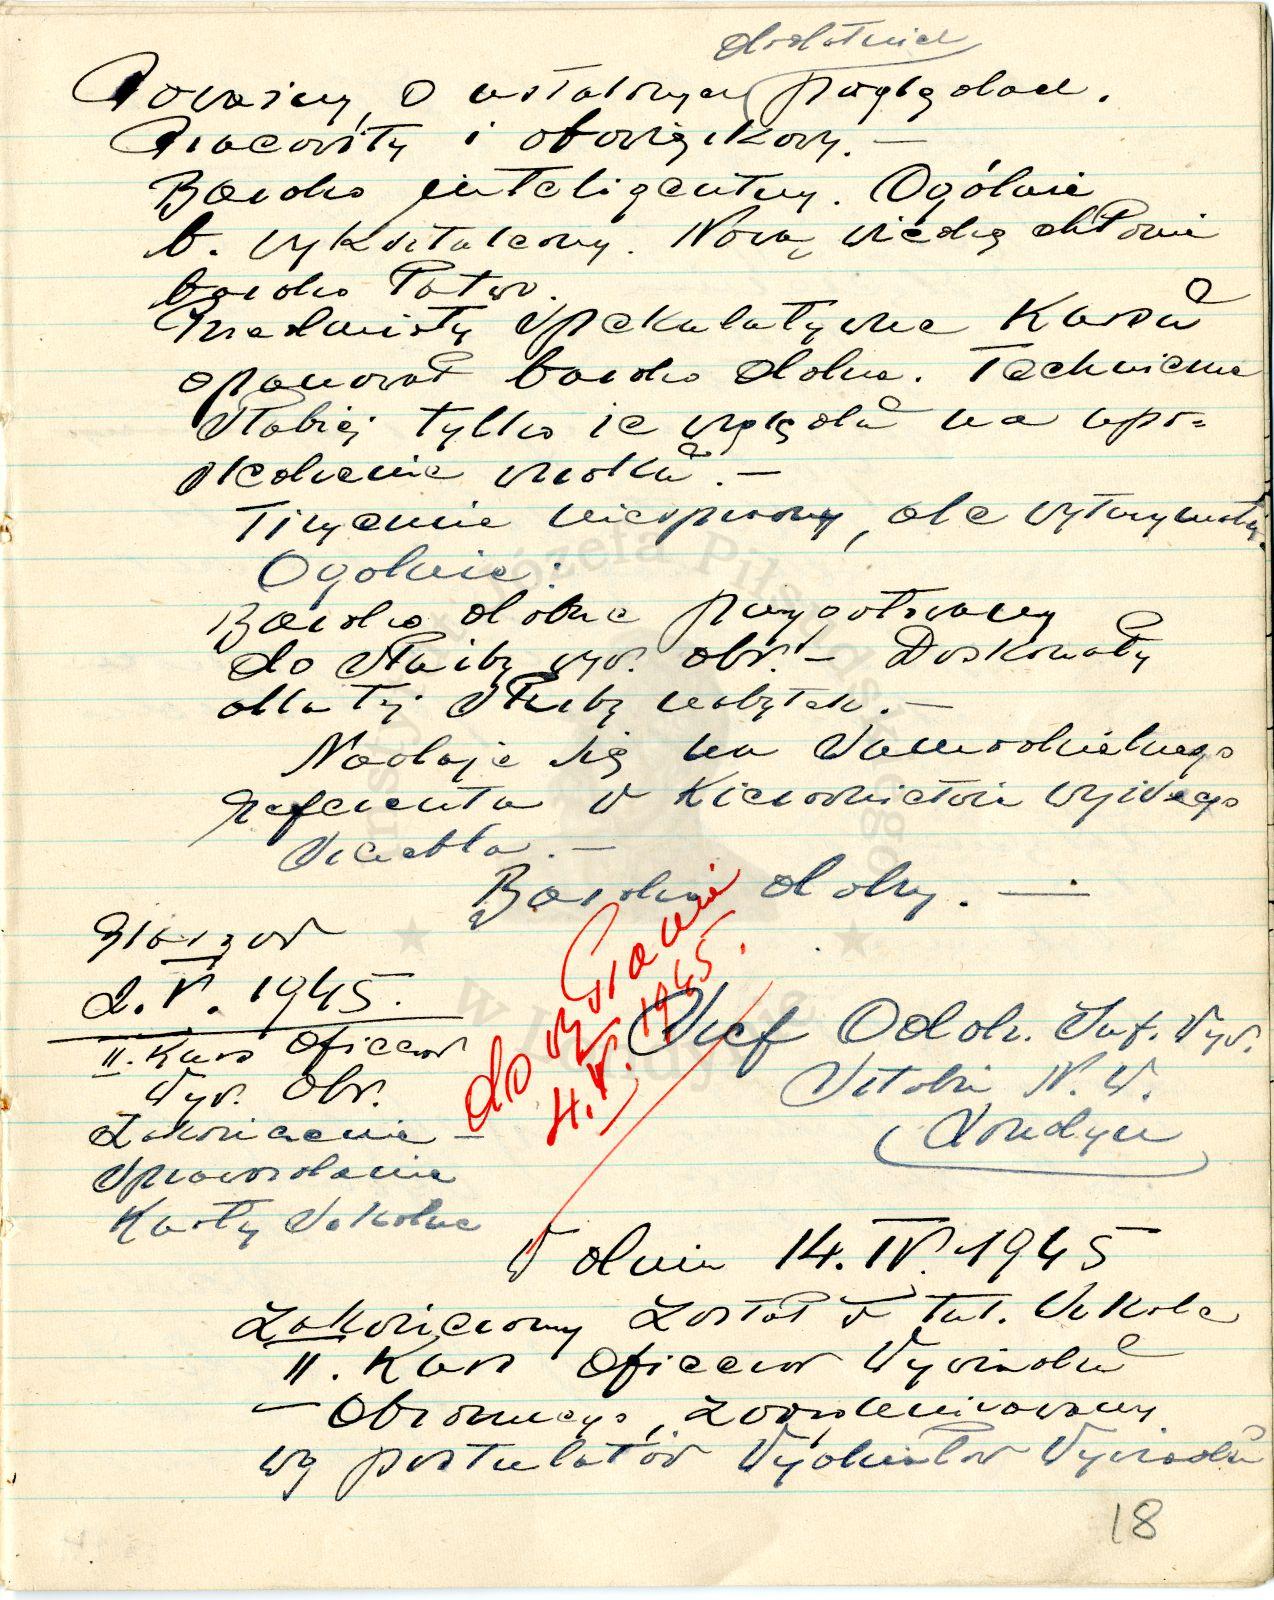 dodatnich
Poważny, o ustalonych poglądach.
Pracowity i obowiązkowy. —
Bardzo inteligentny. Ogólnie
b. wykształcony. Nową wiedzę chłonie
bardzo łatwo.
Przedmioty spekulatywne Kursu
opanował bardzo dobrze. Techniczne
słabiej tylko ze względu na upo=
śledzenie wzroku. —
Fizycznie niesprawny, ale wytrzymały.
Ogólnie:
Bardzo dobrze przygotowany
do służby wyw. obr. — Doskonały
dla tej służby nabytek. —
Nadaje się na samodzielnego
referenta w Kierownictwie wyższego
szczebla. —
Bardzo dobry. —
Glasgow
2.V. 1945.
II. Kurs Oficerów
Wyw. Obr.
Zakończenie —
Sprawozdanie
Karty Szkolne
do wysłania
4.V.1945.
Szef Oddz. Inf. Wyw.
Sztabu N.W.
Londyn
W dniu 14.IV.1945
zakończony został w tut. Szkole
II. Kurs Oficerów Wywiadu
— Obronnego, zorganizowany
wg postulatów Wydziałów Wywiadu
18
Józefa Piłsudskiego
w Londynie